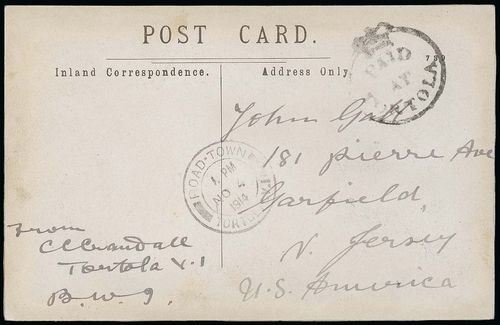 POST CARD.
Inland Correspondence.
Address Only
PAID
AT
TORTOLA
John
181 Pierre Ave
Garfield,
N. Jersey
U.S. America
ROAD-TOWN
1 PM
NO 4
1914
TORTOLA
From
CC Crandall
Tortola V.I
B.W.I.